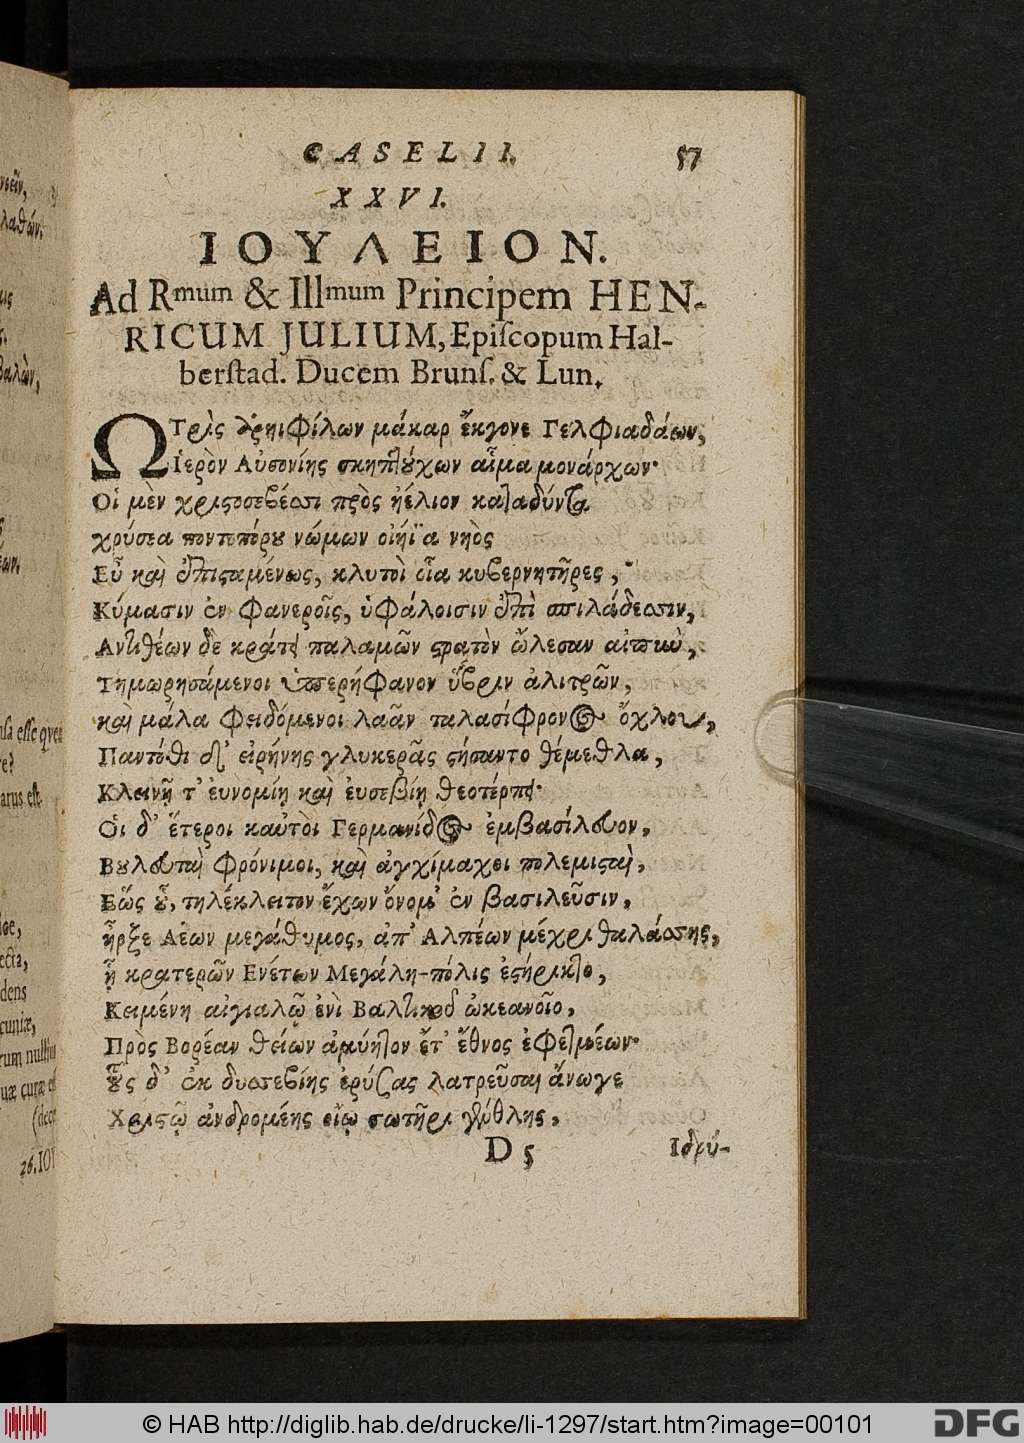 CASELII. 57
XXVI.
ΙΟΥΛΕΙΟΝ.
Ad Rmum & Illmum Principem HEN-
RICUM JULIUM, Epiſcopum Hal-
berſtad. Ducem Brunſ. & Lun.
Ω Τρὶς ἀρηιφίλων μάκαρ ἔκγονε Γελφιαδάων,
Ἱερὸν Αὐσονίης σκηπτούχων αἷμα μονάρχων·
Οἱ μὲν χριστοσεβέεσσι πρὸς ἠέλιον καταδύντα
χρύσεα ποντοπόρου νώμων οἰήϊα νηὸς
Εὖ καὶ ἐπισταμένως, κλυτοὶ οἷα κυβερνητῆρες,
Κύμασιν ἐν φανεροῖς, ὑφάλοισιν ἐπὶ σπιλάδεσσιν,
Αντιθέων δὲ κράτει παλαμῶν στρατὸν ὤλεσαν αἰπὺν,
Τιμωρησάμενοι ὑπερήφανον ὕβριν ἀλιτρῶν,
καὶ μάλα φειδόμενοι λαᾶν ταλασίφρονος ὄχλου,
Παντόθι δ' εἰρήνης γλυκερᾶς στήσαντο θέμεθλα,
Κλεινῇ τ' ἐυνομίῃ καὶ ἐυσεβίῃ θεοτέρπει·
Οἱ δ' ἕτεροι καὐτοὶ Γερμανίδος ἐμβασίλευον,
Βουλευταὶ φρόνιμοι, καὶ ἀγχίμαχοι πολεμισταὶ,
Εὥς οὗ, τηλέκλειτον ἔχων ὄνομ' ἐν βασιλεῦσιν,
ἦρξε Λέων μεγάθυμος, ἀπ' Αλπέων μέχρι θαλάσσης,
ᾗ κρατερῶν Ενέτων Μεγάλη-πόλις ἐστήρικτο,
Κειμένη αἰγιαλῷ ἐνὶ Βαλτικοῦ ὠκεανοῖο,
Πρὸς Βορέαν θείων ἀμύητον ἔτ' ἔθνος ἐφετμέων·
Οὓς δ' ἐκ δυσσεβίης ἐρύσας λατρεῦσαι ἄνωγε
Χριστῷ ἀνδρομέης οἴῳ σωτῆρι γενέθλης,
D 5 Ιδρύ-
26. ΙΟΥ
© HAB http://diglib.hab.de/drucke/li-1297/start.htm?image=00101
DFG